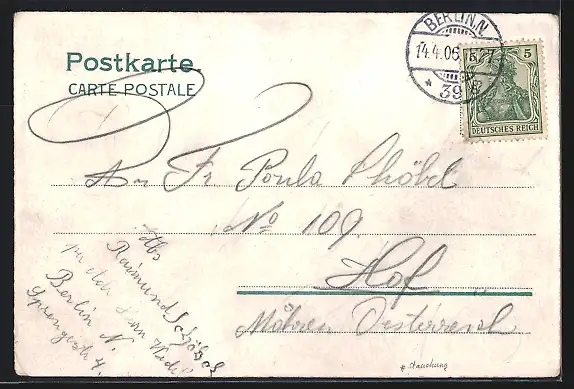 Postkarte.
CARTE POSTALE
BERLIN.N.
14.4.06.
* 39
5 5
DEUTSCHES REICH
An Fr. Paula Schöbel
No 109.
Hof
Mähren Oesterreich
Abs
Raimund Schöbel
Berlin N.
Sprengelstr 4.
* Stauchung